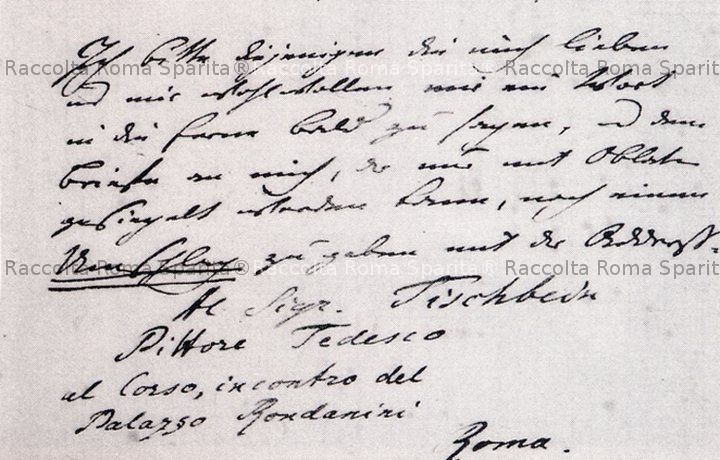 Ich bitte diejenigen die mich lieben
und mir wohlwollen mir ein Wort
in die Ferne bald zu sagen, und dem
Briefe an mich, der nur mit Oblate
gesiegelt werden kann, noch einen
Umschlag zu geben mit der Adresse:
Al Sigr. Tischbein
Pittore Tedesco
al Corso, incontro del
Palazzo Rondanini
Roma.
Raccolta Roma Sparita® Raccolta Roma Sparita® Raccolta Roma Sparita
Raccolta Roma Sparita® Raccolta Roma Sparita® Raccolta Roma Sparita